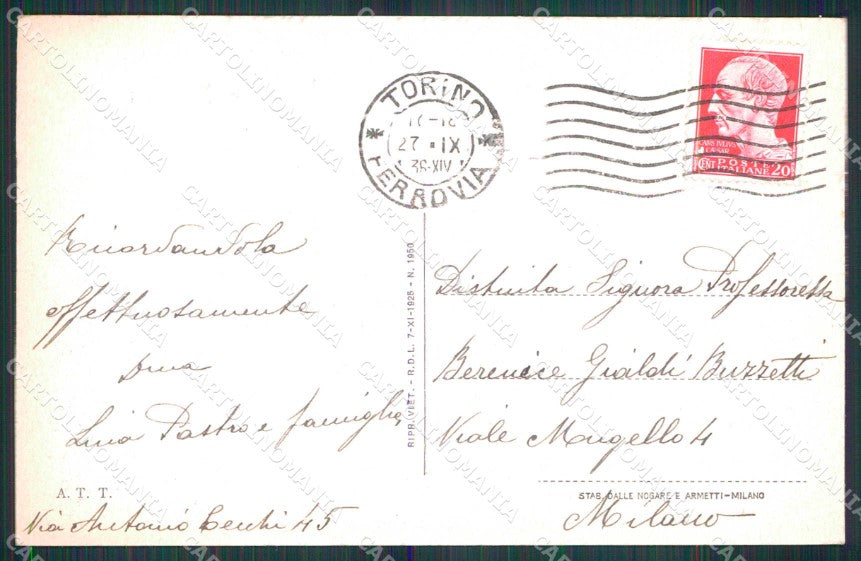 TORINO
17-18
27 · IX
36·XIV
FERROVIA
CAIVS IVLIVS
CAESAR
POSTE
CENT ITALIANE 20
Ricordandola
affettuosamente
Lina Pastro e famiglia
A. T. T.
Via Antonio Cecchi 45
RIPR. VIET. - R.D.L. 7-XI-1925 - N. 1950
Distinta Signora Professoressa
Berenice Gialdi Buzzetti
Viale Mugello 4
STAB. DALLE NOGARE E ARMETTI-MILANO
Milano
CARTOLINOMANIA